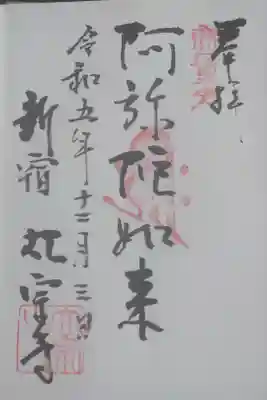 奉拝
阿弥陀如来
令和五年十二月三日
新宿 太宗寺